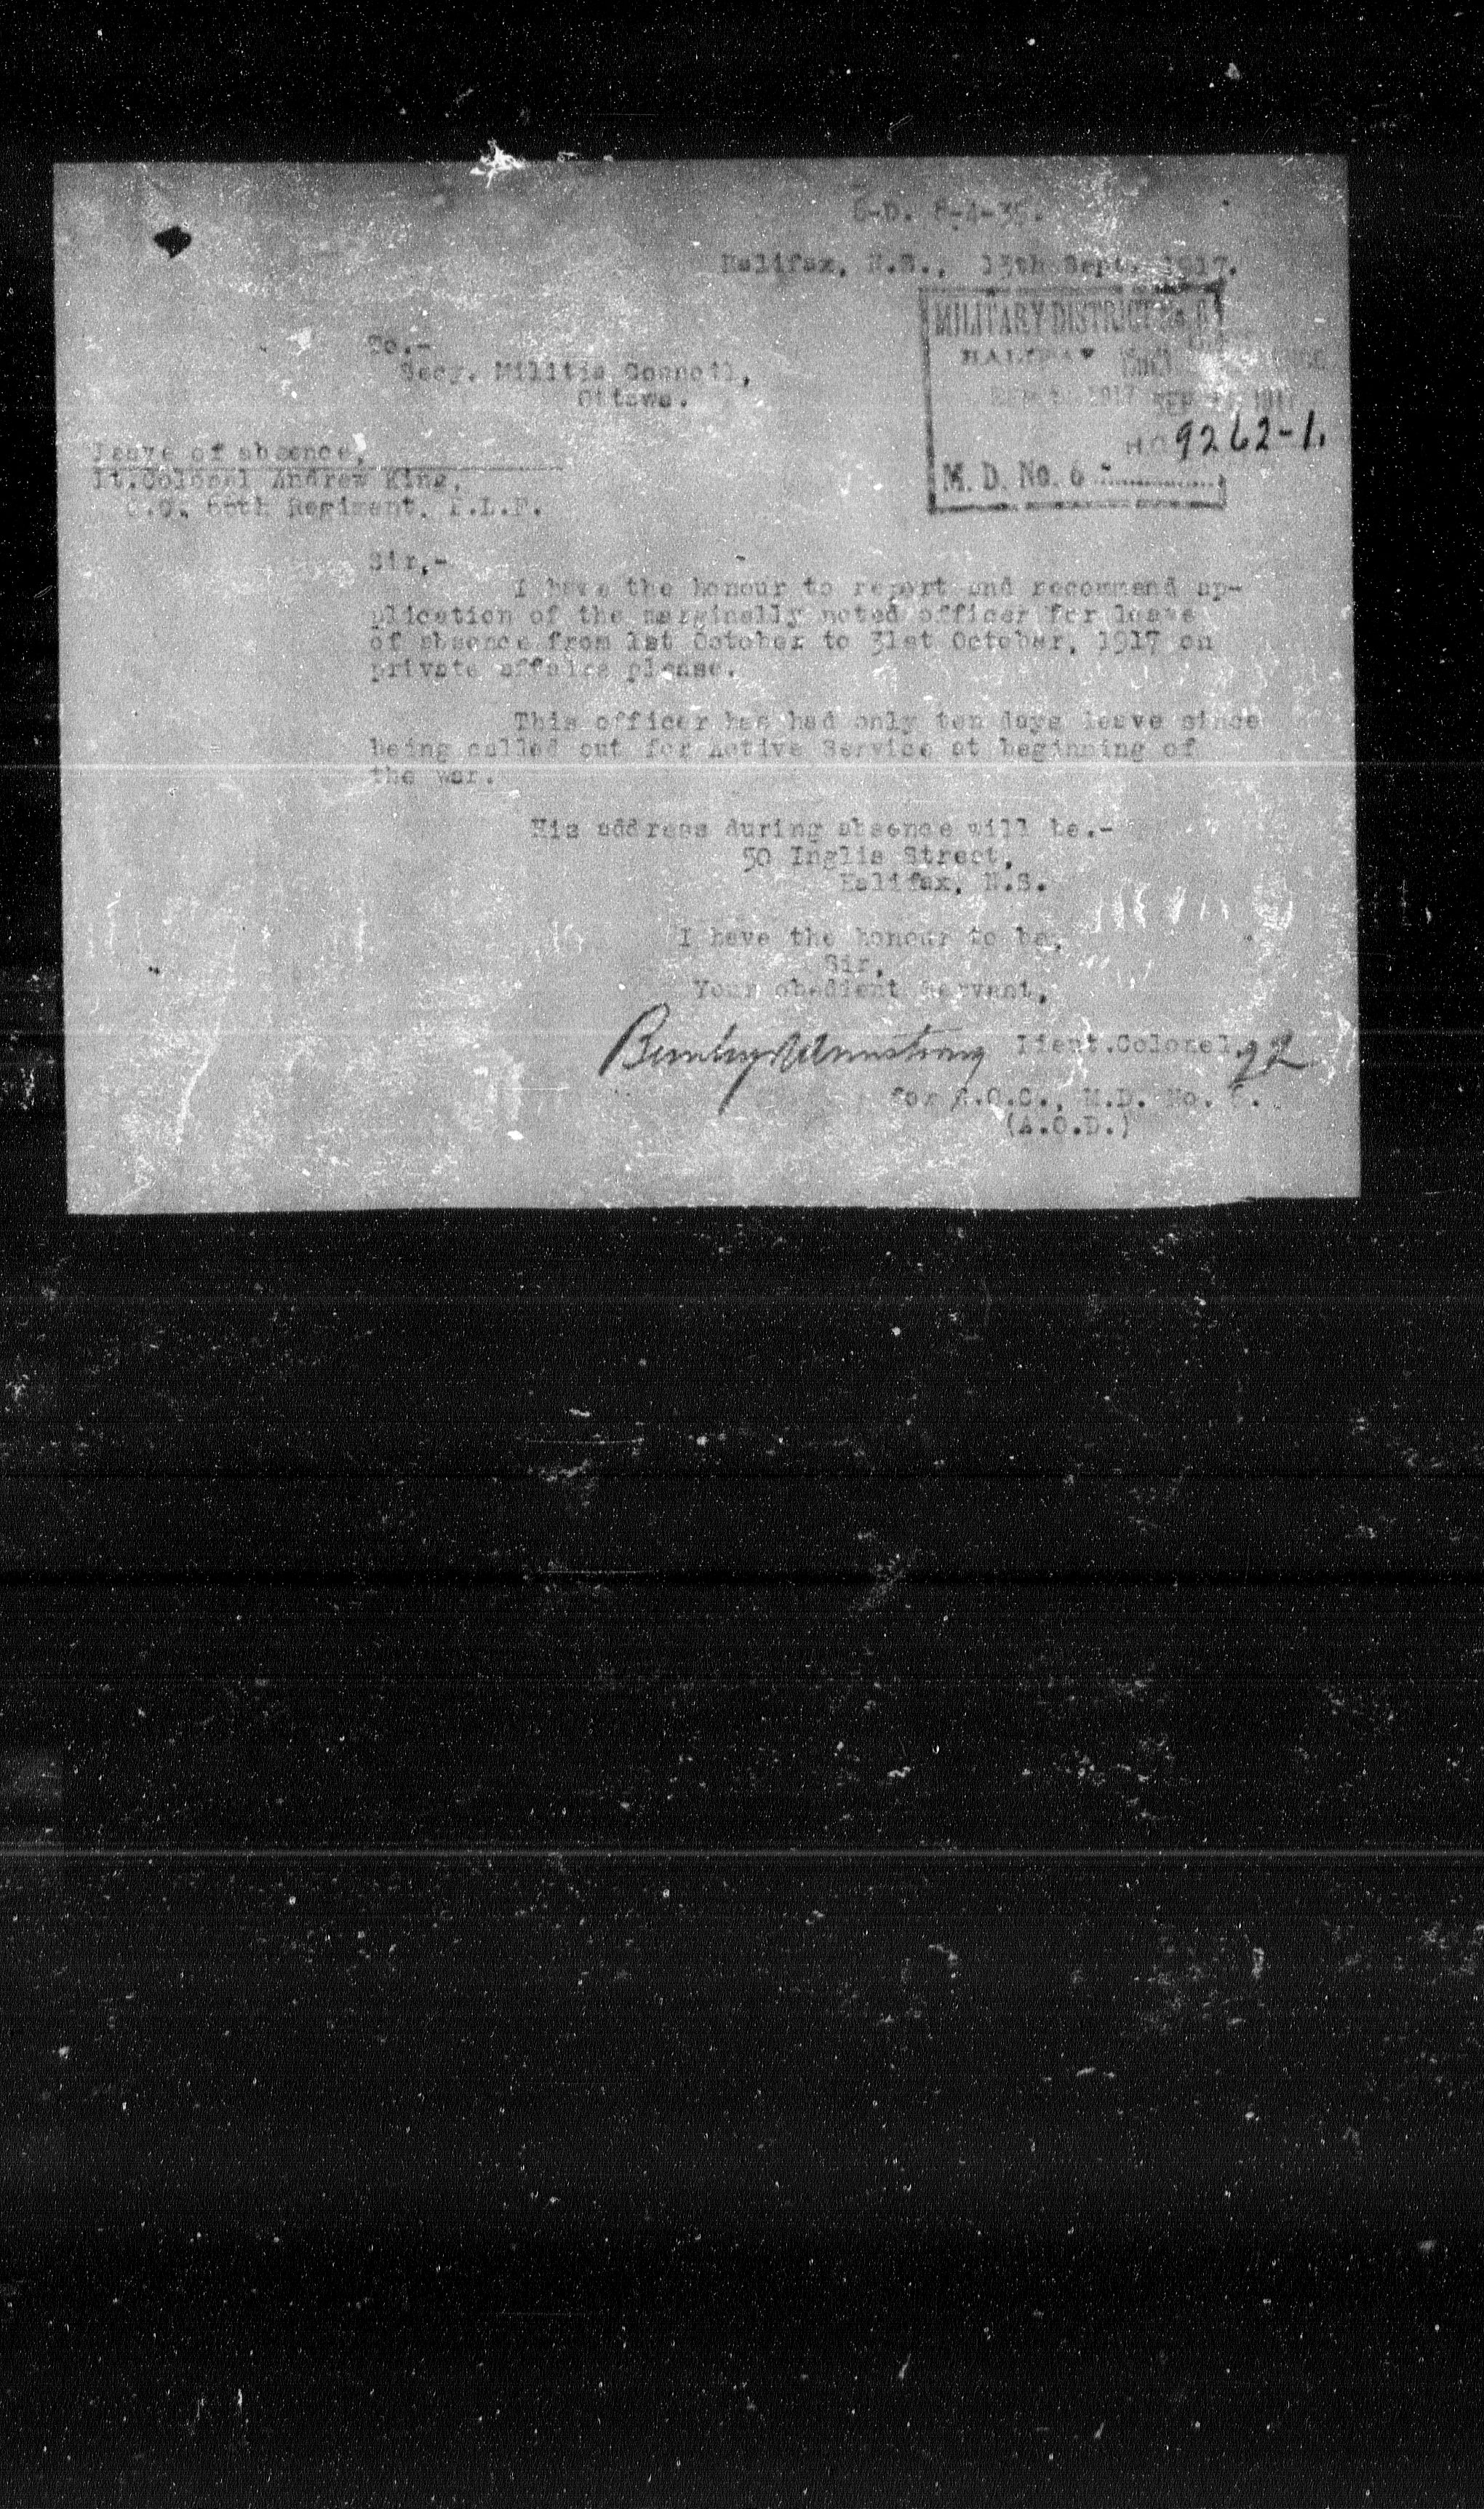 6-D. 8-4-35.
Halifax, N.S., 15th Sept. 1917.
MILITARY DISTRICT No. 6
HALIFAX
SEP 1917
H.Q. 9262-1.
M. D. No. 6 -
To.-
Secy. Militia Council,
Ottawa.
Leave of absence,
Lt.Colonel Andrew King,
O.C. 66th Regiment, P.L.F.
Sir,-
I have the honour to report and recommend ap-
plication of the marginally noted officer for leave
of absence from 1st October to 31st October, 1917 on
private affairs please.
This officer has had only ten days leave since
being called out for Active Service at beginning of
the war.
His address during absence will be.-
50 Inglis Street,
Halifax, N.S.
I have the honour to be,
Sir,
Your obedient Servant,
Armstrong Lieut.Colonel,
for G.O.C., M.D. No. 6.
(A.O.D.)